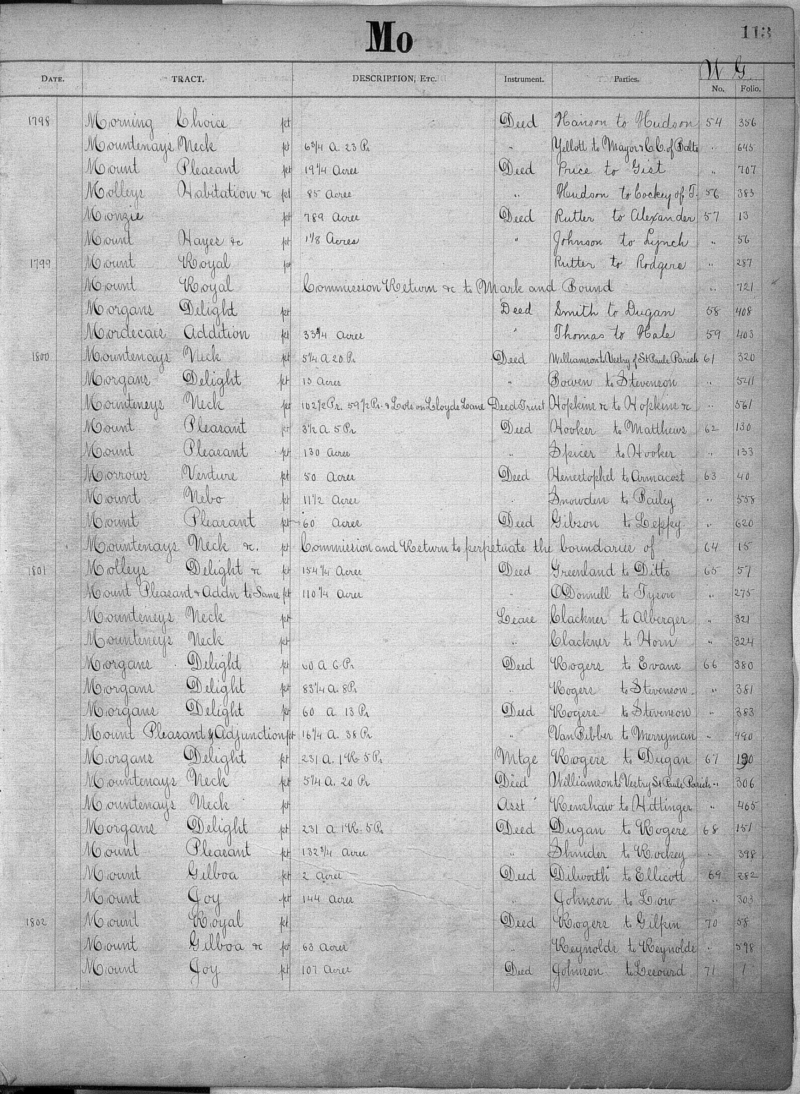 Mo
113
W G
DATE. TRACT. DESCRIPTION, ETC. Instrument. Parties. No. Folio.
1798 Morning Choice pt Deed Hanson to Hudson 54 356
Mountenays Neck pt 6¾ A 23 Ps " Yellott to Mayor & C.C. of Balto " 645
Mount Pleasant pt 19¼ Acres Deed Price to Gist " 707
Molleys Habitation &c pt 85 Acres " Hudson to Cockey of T. 56 383
Mongie pt 789 Acres Deed Rutter to Alexander 57 13
Mount Hayes &c pt 1⅛ Acres " Johnson to Lynch " 56
1799 Mount Royal pt Rutter to Rodgers " 287
Mount Royal Commission Return &c to Mark and Bound " 721
Morgans Delight pt Deed Smith to Dugan 58 408
Mordecais Addition pt Acres " Thomas to Hale 59 403
1800 Mountenays Neck pt 5¼ A 20 Ps Deed Williamson to Vestry of St Pauls Parish 61 320
Morgans Delight pt 13 Acres " Bowen to Stevenson " 541
Mounteneys Neck pt 102½ Ps. 59½ Ps. & Lots on Lloyds Leane Deed Trust Hopkins &c to Hopkins &c " 561
Mount Pleasant pt 3½ A 5 Ps Deed Hooker to Matthews 62 130
Mount Pleasant pt 130 Acres " Spicer to Hooker " 133
Morrows Venture pt 50 Acres Deed to Armacost 63 40
Mount Nebo pt 11½ Acres " Snowden to Bailey " 558
Mount Pleasant pt 60 Acres Deed Gibson to Leppy " 620
Mountenays Neck &c. pt Commission and Return to perpetuate the boundaries of 64 15
1801 Molleys Delight &c pt 154¼ Acres Deed Greenland to Ditto 65 57
Mount Pleasant & Addn to Same pt 110¼ Acres " ODonnell to Tyson " 275
Mounteneys Neck pt Lease Clackner to Alberger " 321
Mounteneys Neck pt " Clackner to Horn " 324
Morgans Delight pt 60 A 6 Ps Deed Rogers to Evans 66 380
Morgans Delight pt 83¼ A. 8 Ps " Rogers to Stevenson " 381
Morgans Delight pt 60 A 13 Ps Deed Rogers to Stevenson " 383
Mount Pleasant & Adjunction pt 16¼ A. 38 Ps " VanBibber to Merryman " 490
Morgans Delight pt 231 A. 1 R. 5 Ps Mtge Rogers to Dugan 67 190
Mountenays Neck pt 5¼ A. 20 Ps Deed Williamson to Vestry St Pauls Parish " 306
Mountenays Neck pt Asst Renshaw to Hittinger " 465
Morgans Delight pt 231 A 1 R. 5 Ps Deed Dugan to Rogers 68 151
Mount Pleasant pt 132¾ Acres " Shnider to Rockey " 398
Mount Gilboa pt 2 Acres Deed Dilworth to Ellicott 69 282
Mount Joy pt 144 Acres " Johnson to Low " 303
1802 Mount Royal pt Deed Rogers to Gilpin 70 58
Mount Gilboa &c pt 63 Acres " Reynolds to Reynolds " 598
Mount Joy pt 107 Acres Deed Johnson to Leeourd 71 1